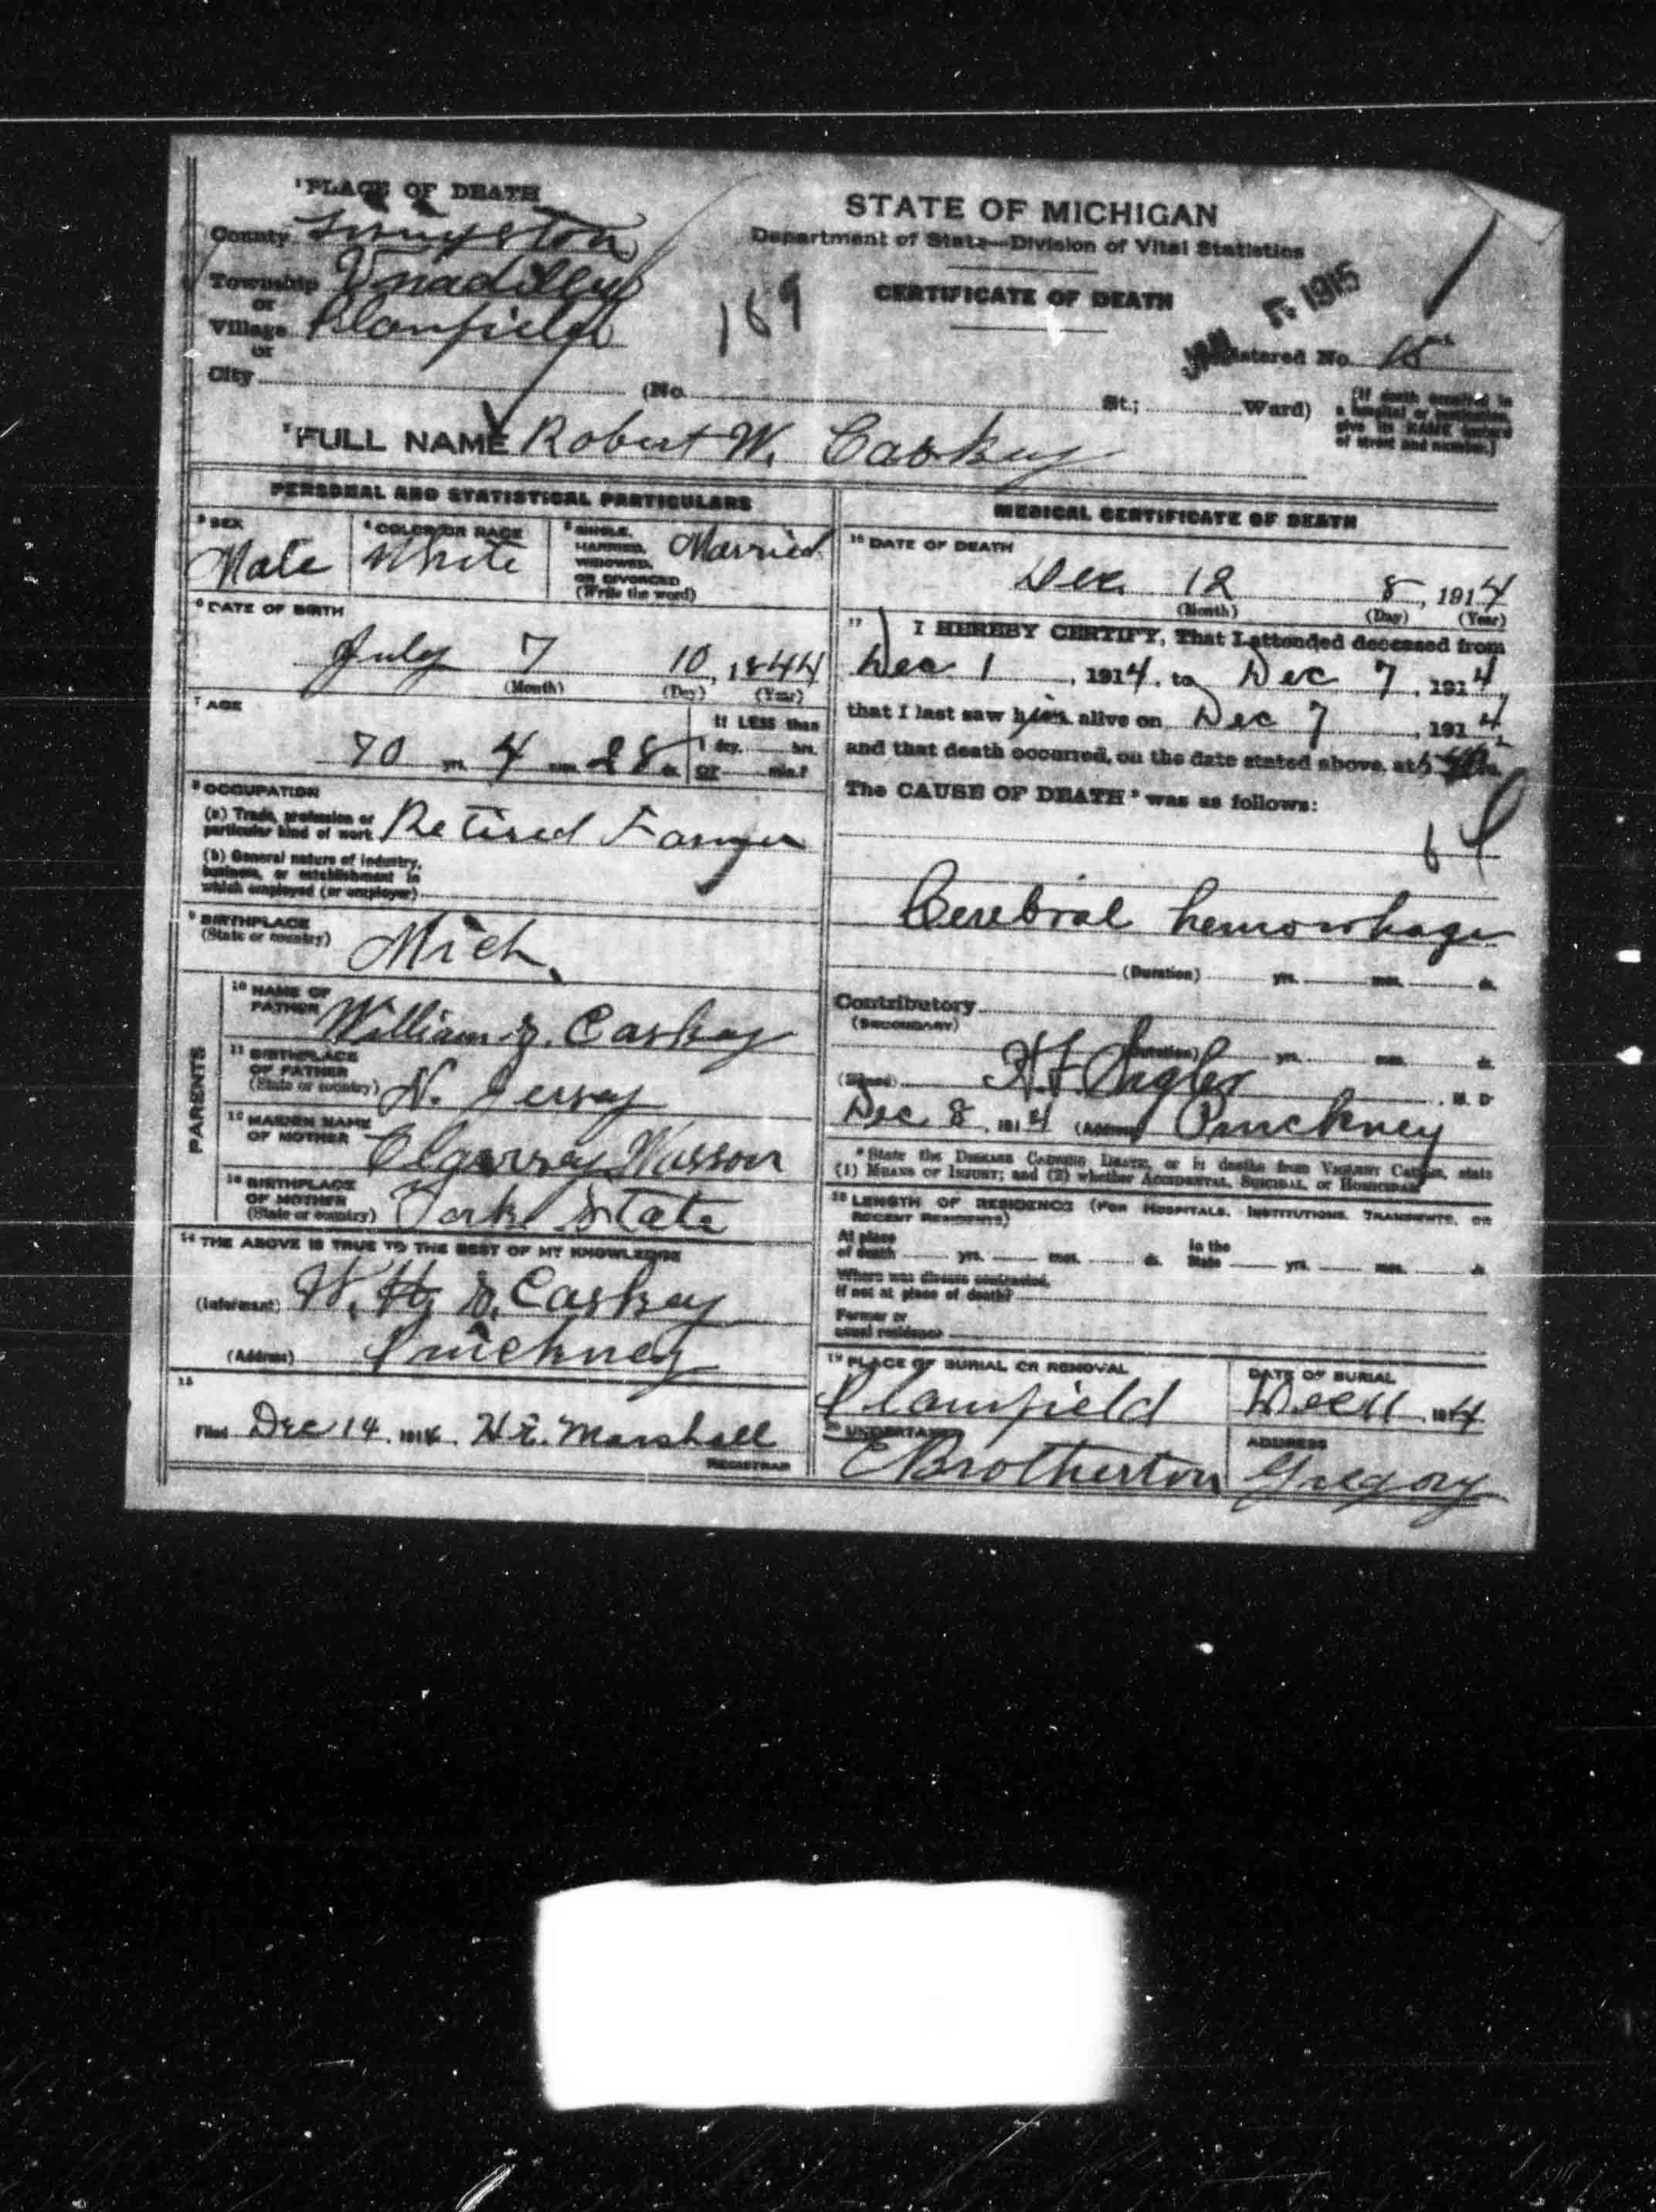 ¹PLACE OF DEATH
County Livingston
Township Unadilla
or
Village Plainfield
or
City (No. St.; Ward)
169
STATE OF MICHIGAN
Department of State—Division of Vital Statistics
CERTIFICATE OF DEATH
JAN 1915
Registered No. 15
(If death occurred in
a hospital or institution,
give its NAME instead
of street and number.)
²FULL NAME Robert W. Caskey
PERSONAL AND STATISTICAL PARTICULARS
³SEX
Male
⁴COLOR OR RACE
White
⁵SINGLE,
MARRIED,
WIDOWED,
OR DIVORCED
(Write the word)
Married
⁶DATE OF BIRTH
July 7 10, 1844
(Month) (Day) (Year)
⁷AGE
70 yrs. 4 mos. 28 ds.
If LESS than
1 day, hrs.
or min.?
⁸OCCUPATION
(a) Trade, profession or
particular kind of work Retired Farmer
(b) General nature of industry,
business, or establishment in
which employed (or employer)
⁹BIRTHPLACE
(State or country) Mich.
PARENTS
¹⁰NAME OF
FATHER William Caskey
¹¹BIRTHPLACE
OF FATHER
(State or country) N. Jersey
¹²MAIDEN NAME
OF MOTHER Wasson
¹³BIRTHPLACE
OF MOTHER
(State or country) York State
¹⁴THE ABOVE IS TRUE TO THE BEST OF MY KNOWLEDGE
(Informant) W. Caskey
(Address) Pinckney
¹⁵
Filed Dec 14, 1914 H.E. Marshall
REGISTRAR
MEDICAL CERTIFICATE OF DEATH
¹⁶DATE OF DEATH
Dec. 12 8, 1914
(Month) (Day) (Year)
¹⁷ I HEREBY CERTIFY, That I attended deceased from
Dec 1, 1914, to Dec 7, 1914,
that I last saw him alive on Dec 7, 1914
and that death occurred, on the date stated above, at 5
The CAUSE OF DEATH* was as follows:
64
Cerebral hemorrhage
(Duration) yrs. mos. ds.
Contributory
(SECONDARY)
(Duration) yrs. mos. ds.
(Signed) H.F. Sigler M. D.
Dec 8, 1914 (Address) Pinckney
*State the DISEASE CAUSING DEATH, or in deaths from VIOLENT CAUSES, state
(1) MEANS OF INJURY; and (2) whether ACCIDENTAL, SUICIDAL, OR HOMICIDAL
¹⁸LENGTH OF RESIDENCE (FOR HOSPITALS, INSTITUTIONS, TRANSIENTS, OR
RECENT RESIDENTS)
At place
of death yrs. mos. ds.
In the
State yrs. mos. ds.
Where was disease contracted,
if not at place of death?
Former or
usual residence
¹⁹PLACE OF BURIAL OR REMOVAL
Plainfield
DATE OF BURIAL
Dec 11, 1914
²⁰UNDERTAKER
E Brotherton
ADDRESS
Gregory